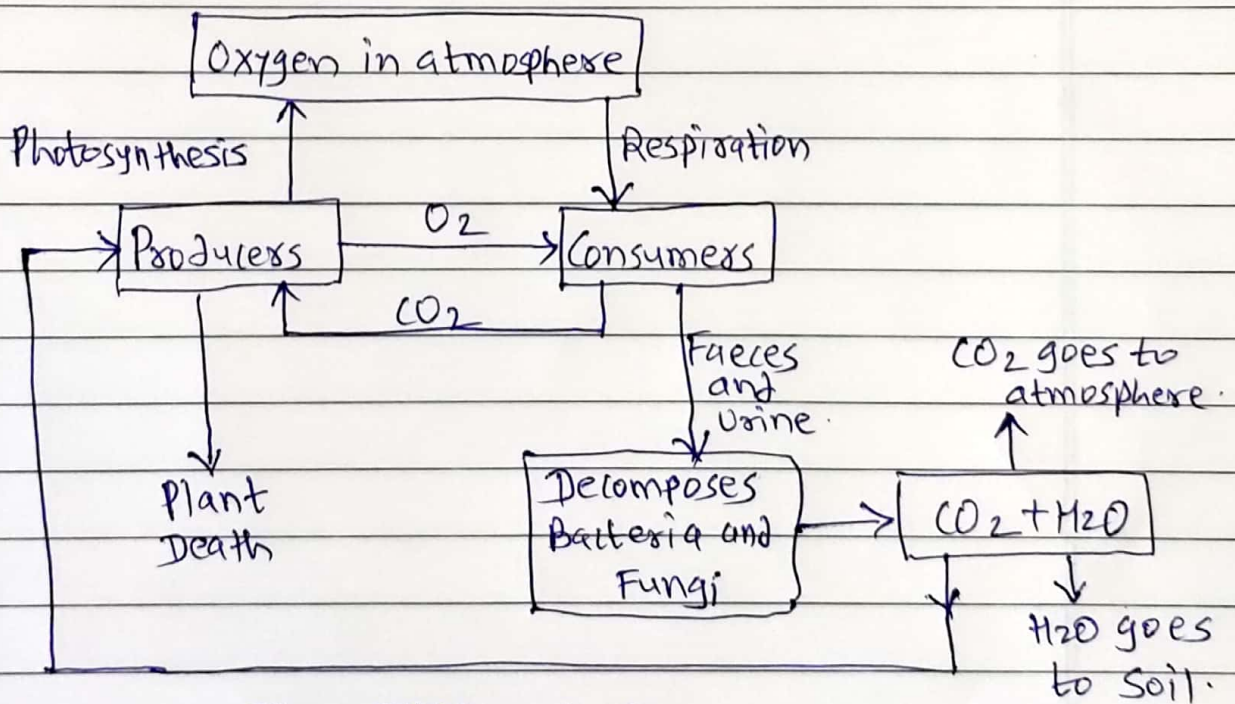 Oxygen in atmosphere
Photosynthesis
Respiration
Producers
O2
Consumers
CO2
Faeces
and
Urine.
CO2 goes to
atmosphere.
Plant
Death
Decomposes
Bacteria and
Fungi
CO2+H2O
H2O goes
to Soil.